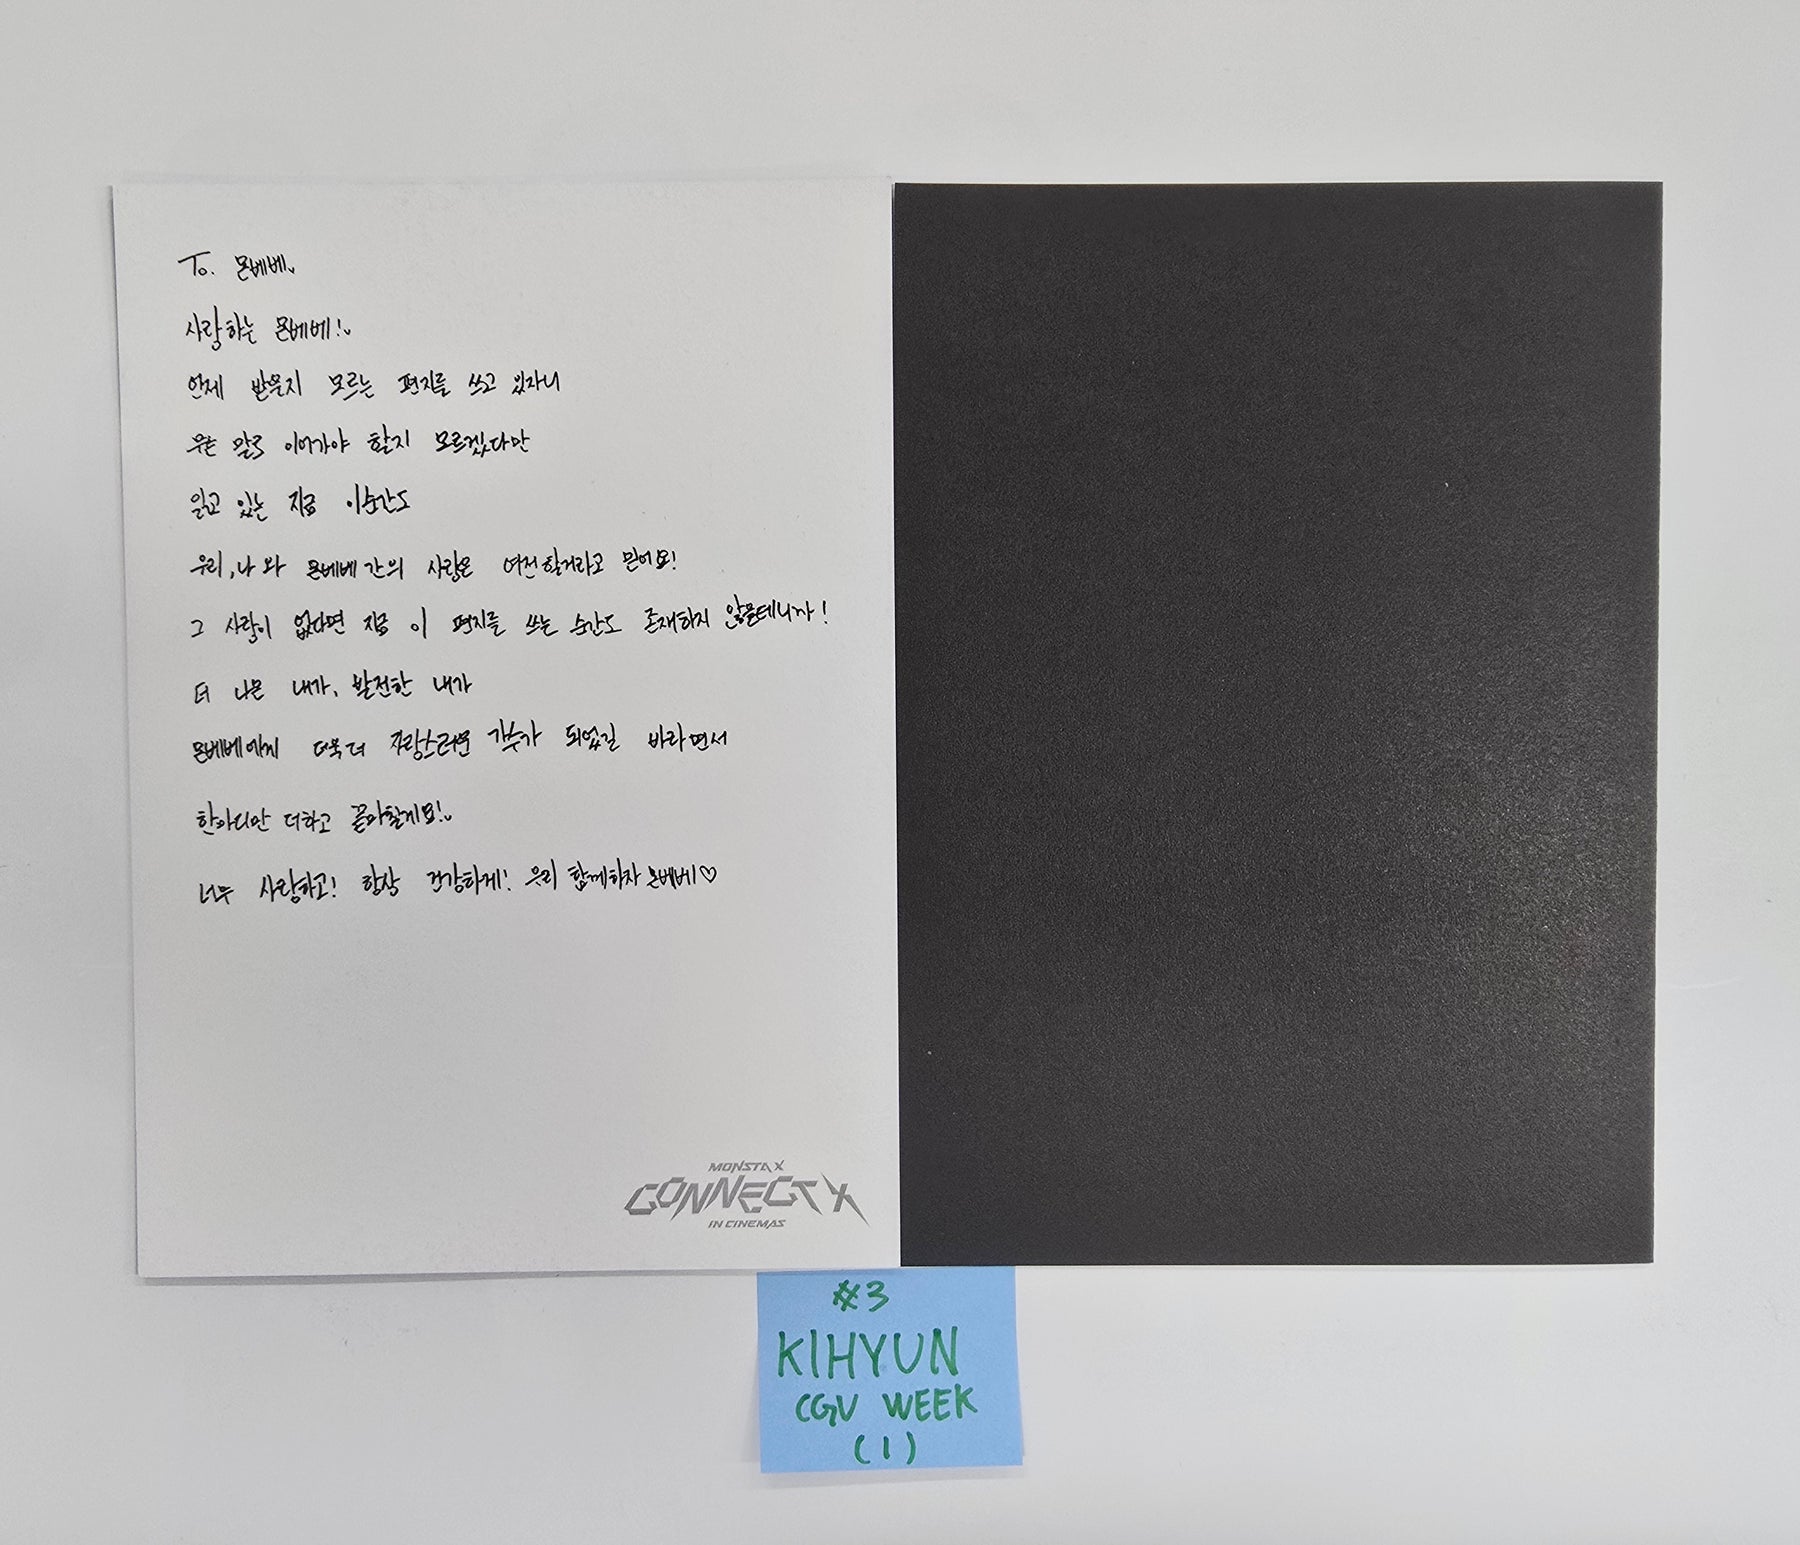 To. 몬베베.
사랑하는 몬베베!.
언제 받을지 모르는 편지를 쓰고 있자니
무슨 말로 이어가야 할지 모르겠다만
읽고 있는 지금 이순간도
우리, 나와 몬베베간의 사랑은 여전할거라고 믿어요!
그 사랑이 없다면 지금 이 편지를 쓰는 순간도 존재하지 않을테니까!
더 나은 내가, 발전한 내가
몬베베에게 더욱더 자랑스러운 가수가 되었길 바라면서
한마디만 더하고 끝마칠게요!.
너무 사랑하고! 항상 건강하게! 우리 함께하자 몬베베♡
MONSTA X
CONNECT X
IN CINEMAS
#3
KIHYUN
CGV WEEK
(1)